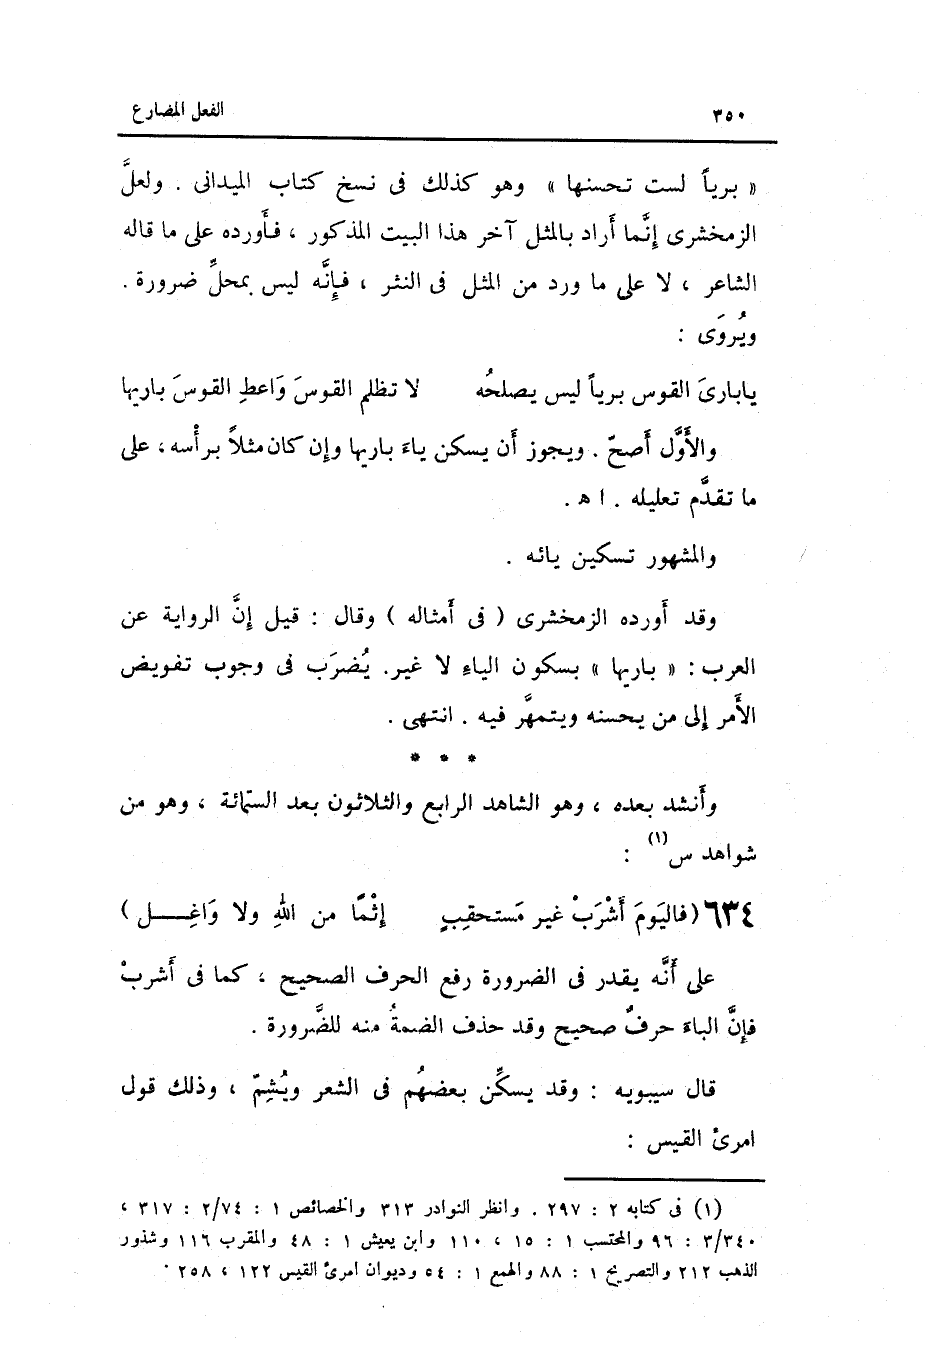 ٣٥٠ الفعل المضارع
« برياً لست تحسنها » وهو كذلك فى نسخ كتاب الميدانى . ولعلَّ
الزمخشرى إنَّما أراد بالمثل آخر هذا البيت المذكور ، فأورده على ما قاله
الشاعر ، لا على ما ورد من المثل فى النثر ، فإنَّه ليس بمحلِّ ضرورة .
ويُروَى :
يابارىَ القوس برياً ليس يصلحُه لا تظلم القوسَ وَاعطِ القوسَ باريها
والأَوَّل أَصحّ . ويجوز أَن يسكن ياءَ باريها وإِن كان مثلاً برأْسه ، على
ما تقدَّم تعليله . ا ه .
والمشهور تسكين يائه .
وقد أَورده الزمخشرى ( فى أَمثاله ) وقال : قيل إنَّ الرواية عن
العرب : « باريها » بسكون الياءِ لا غير. يُضرَب فى وجوب تفويض
الأَمر إلى من يحسنه ويتمهَّر فيه . انتهى .
* * *
وأَنشد بعده ، وهو الشاهد الرابع والثلاثون بعد الستمائة ، وهو من
شواهد س(١) :
٦٣٤ (فاليَومَ أَشْرَبْ غير مَستحقِبٍ إثْمًا من اللهِ ولا وَاغِـــل )
على أَنَّه يقدر فى الضرورة رفع الحرف الصحيح ، كما فى أَشربْ
فإنَّ الباءَ حرفٌ صحيح وقد حذف الضمةُ منه للضَّرورة .
قال سيبويه : وقد يسكِّن بعضهُم فى الشعر ويُشِمّ ، وذلك قول
امرئ القيس :
(١) فى كتابه ٢ : ٢٩٧ . وانظر النوادر ٣١٣ والخصائص ١ : ٢/٧٤ : ٣١٧ ،
٣/٣٤٠ : ٩٦ والمحتسب ١ : ١٥ ، ١١٠ وابن يعيش ١ : ٤٨ والمقرب ١١٦ وشذور
الذهب ٢١٢ والتصريح ١ : ٨٨ والهمع ١ : ٥٤ وديوان امرئ القيس ١٢٢ ، ٢٥٨ .